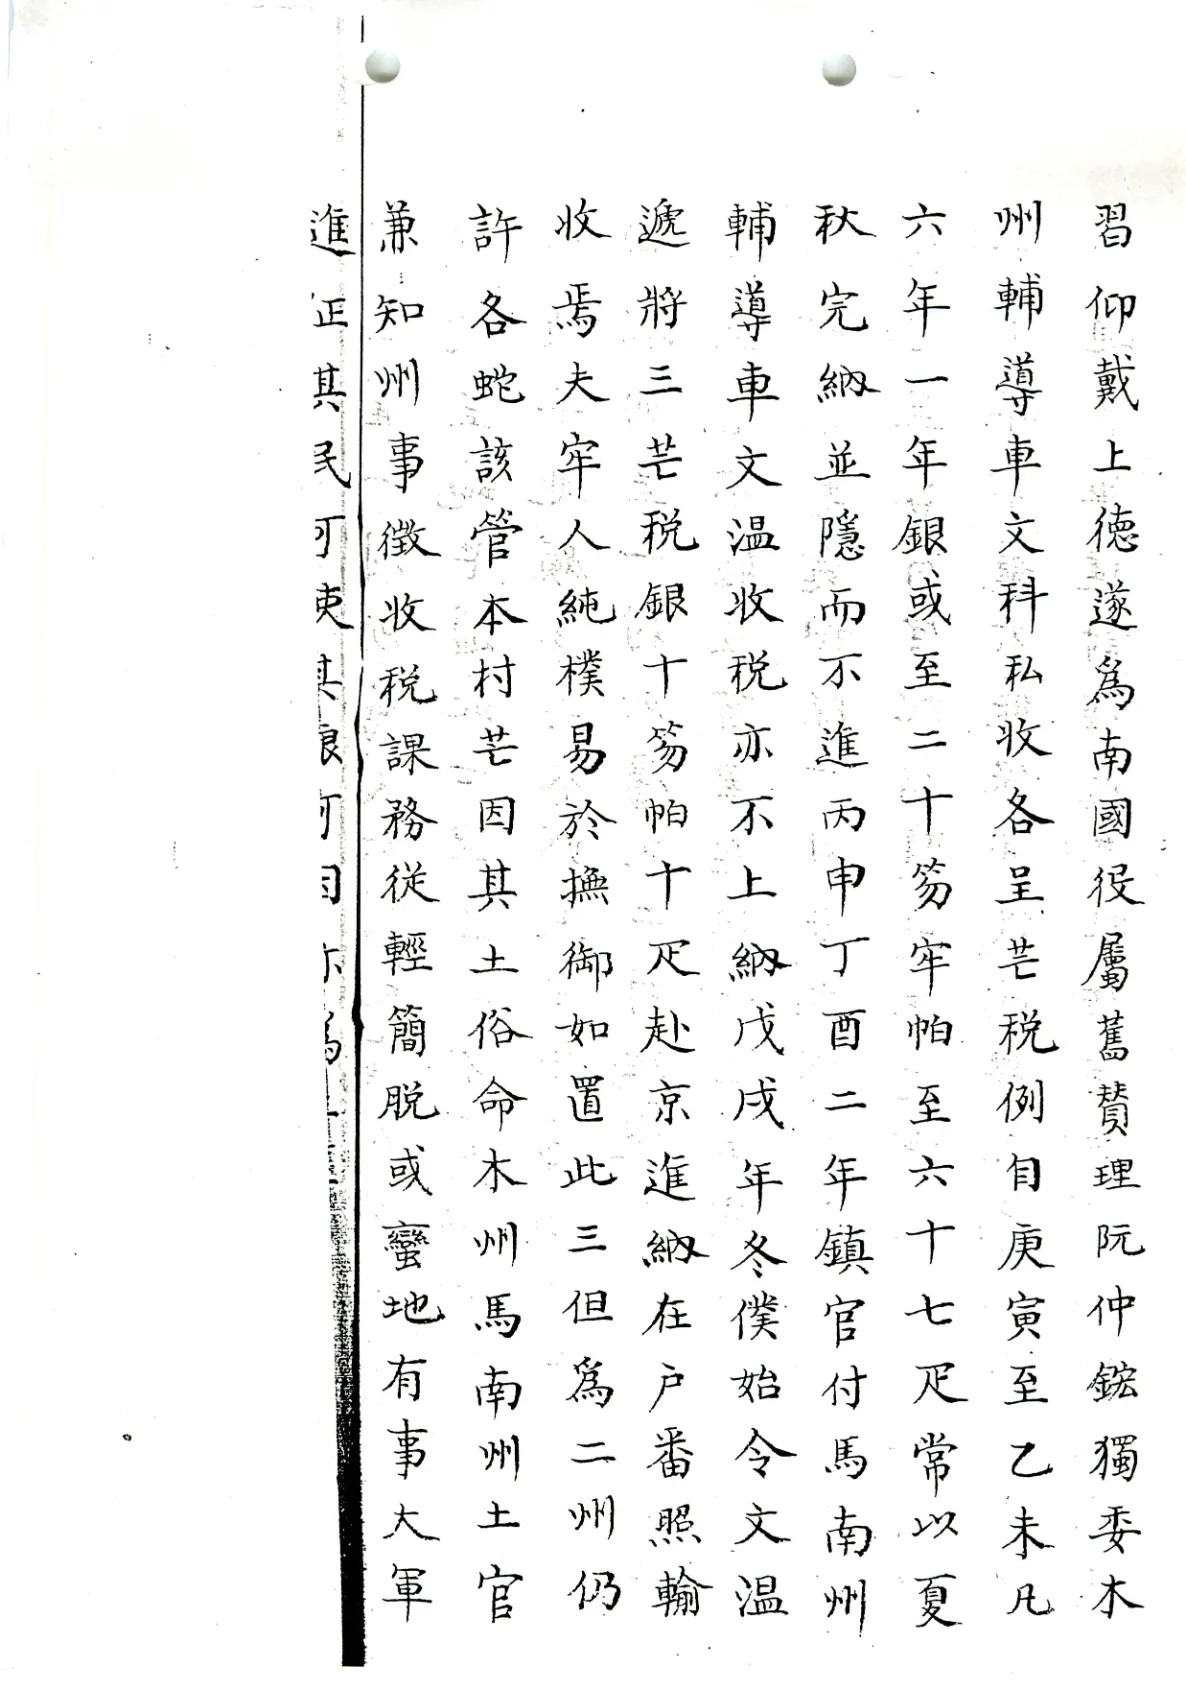 習仰戴上德遂爲南國役屬舊贊理阮仲鋐獨委木
州輔導車文科私收各呈芒税例自庚寅至乙未凡
六年一年銀或至二十笏牢帕至六十七疋常以夏
秋完納並隱而不進丙申丁酉二年鎮官付馬南州
輔導車文温收税亦不上納戊戌年冬僕始令文温
遞將三芒税銀十笏帕十疋赴京進納在户番照輸
收焉夫牢人純樸易於撫御如置此三但爲二州仍
許各蛇該管本村芒因其土俗命木州馬南州土官
兼知州事徵收税課務從輕簡脱或蠻地有事大軍
進征其民可使其粮可因亦爲